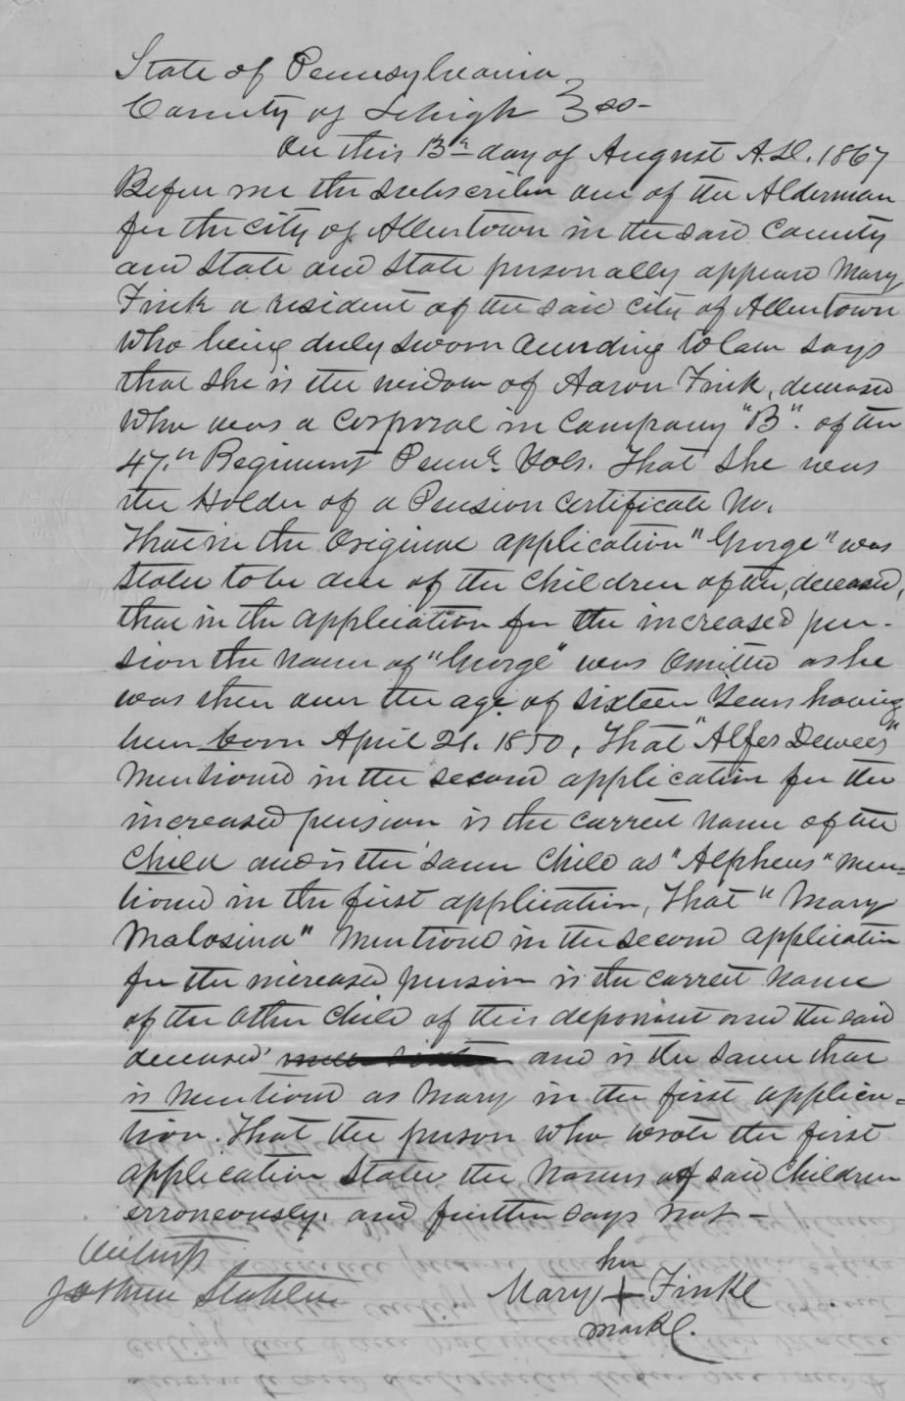 State of Pennsylvania
County of Lehigh } ss-
On this 13th day of August A.D. 1867
Before me the subscriber one of the Alderman
for the city of Allentown in the said County
and State and State personally appeard Mary
Fink a resident of the said city of Allentown
Who being duly sworn according to law says
that she is the widow of Aaron Fink, deceased
Who was a Corporal in Company "B". of the
47th Regiment Penna Vols. That she was
the Holder of a Pension Certificate No.
That in the Original application "George" was
stated to be one of the children of the, deceased,
that in the application for the increased pen-
sion the name of "George" was omitted as he
was then over the age of sixteen years having
been born April 21. 1850, That "Alfes Dewees"
Mentioned in the second application for the
increased pension is the correct name of the
Child and is the same child as "Alpheus" men=
tioned in the first application, That "Mary
Malosina" mentioned in the second application
for the increased pension is the correct name
of the other child of this deponent and the said
deceased and is the same that
is mentioned as Mary in the first applica=
tion. That the person who wrote the first
application stated the names of said children
erroneously. and further says not -
Witness
Joshua Stahler
her
Mary + Finkl
mark.